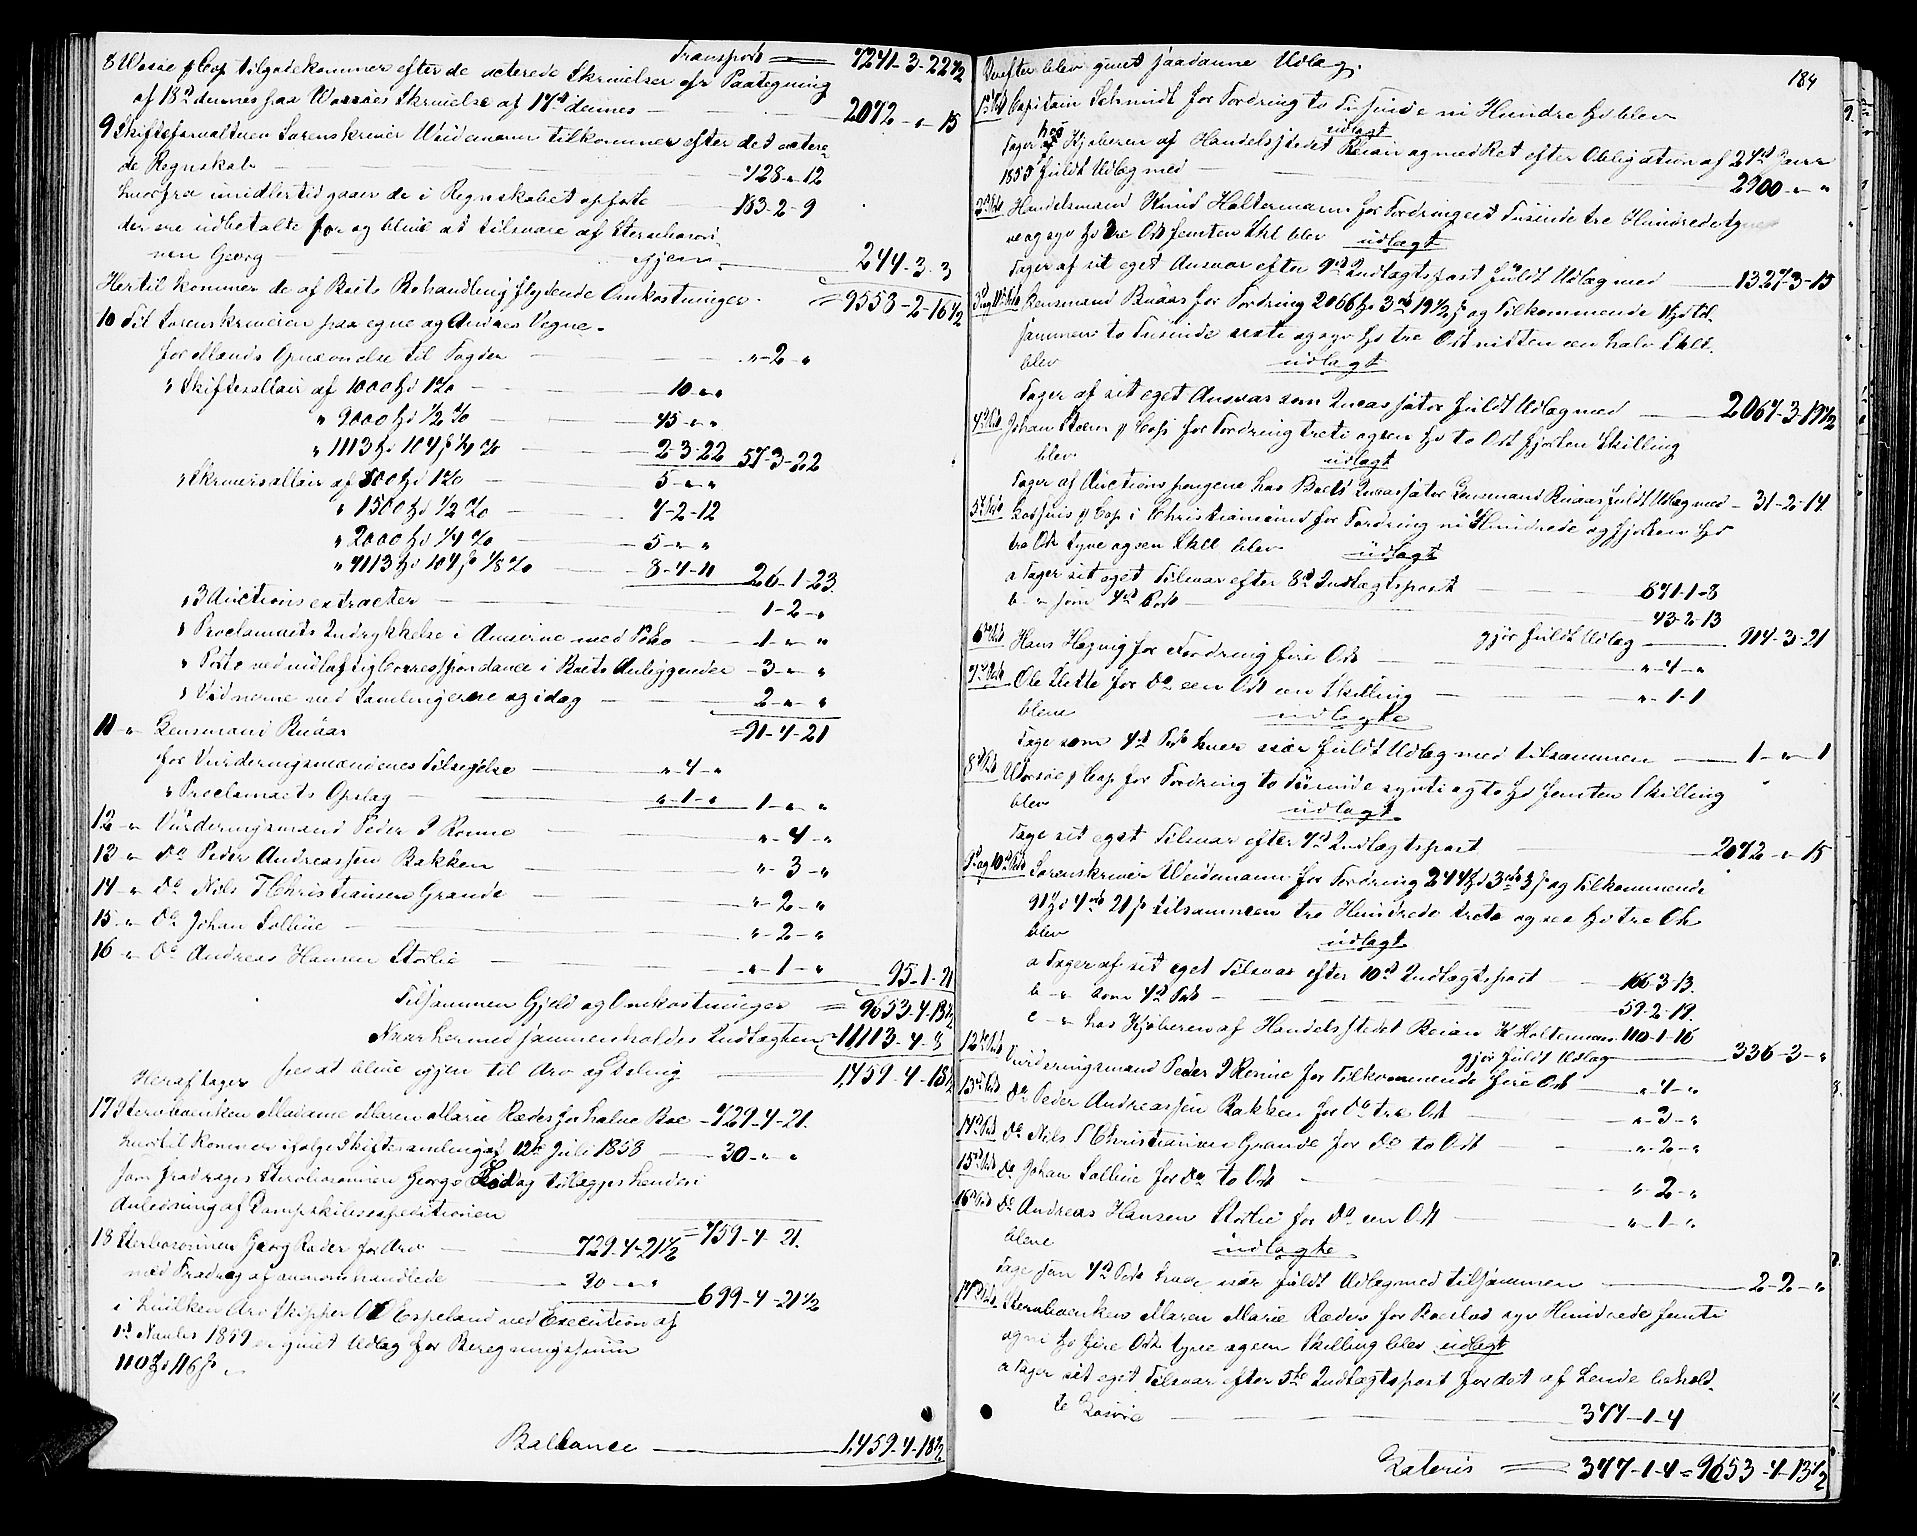 Transport = 7241-3-22½
8 Worsøe & Cop tilgodekommer efter de acterede Skrivelser efr Paategning
af 18d dennes paa Worsøes Skrivelse af 17d dennes — 2072 - " 15
9 Skifteforvalteren Sorenskriver Weidemann tilkommer efter det actere-
de Regnskab — 428 " 12
hvorfra imidlertid gaaer de i Regnskabet opførte — 183-2-9
der ere udbetalte for og blive at tilsvare af Sterbosøn-
nen Georg — igjen — 244-3-3
Hertil kommer de af Boets Behandling flydende Omkostninger = 9558-2-16½
10 Til Sorenskriveren paa egne og Andres Vegne.
for Mænds Opnævnelse til Fogden — "-2-"
" Skiftesallair af 1000 Spd 1% — 10 " "
" 9000 Spd ½% — 45-"-"
" 1113 Spd 104 s ¼% — 2-3-22 57-3-22
" Skriversallair af 500 Spd 1% — 5-"-"
" 1500 Spd ½% — 7-2-12
" 2000 Spd ¼% — 5-"-"
" 7113 Spd 104 s ⅛% — 8-4-11 26-1-23
" 3 Auctionsextracter — 1-2-"
" Proclamaets Indrykkelse i Aviserne med Porto — 1-"-"
" Porto ved vidløftig Correspondance i Boets Anliggender — 3-"-"
" Vidnerne ved Samlingerne og idag — 2-"-"
= 91-4-21
11 " Lensmand Buaas
for Vurderingsmændenes Tilsigelse — "-4-"
" Proclamaets Opslag — "-1-" 1-"-"
12 " Vurderingsmand Peder J Rønne — "-4-"
13 " Do Peder Andreassen Bakken — "-3-"
14 " Do Nils T Christiansen Grande — "-2-"
15 " Do Johan Sollie — "-2-"
16 " Do Andreas Hansen Storlie — "-1-" 95-1-21
Tilsammen Gjeld og Omkostninger = 9653-4-13½
Naar hermed sammenholdes Indtægten = 11113-4-3
sees at blive igjen til Arv og Deling — 1459-4-13½
Heraf tager
17 Sterboenken Madame Maren Marie Ræder for halve Boe 729-4-21
hvortil kommer ifølge Skiftesamlingen af 12te Juli 1858 — 30-"-"
som fradrages Sterbosønnen Georgs Lod og tillægges hende i
Anledning af Dampskibsexpeditionen
= 759-4-21
18 Sterbosønnen Georg Ræder for Arv — 729-4-21½
med Fradrag af ovenomhandlede — 30-"-"
i hvilken Arv Skipper O Espeland ved Execution af 699-4-21½
1st Novbr 1859 er givet Udlæg for Beregningssum
110 Spd 116 s.
Ballance — 1,459-4-18½
184
Derefter blev givet saadanne Udlæg.
1st Prto Capitain Schmidt for Fordring to Tusinde ni Hundre Spd blev
udlagt
Tager hos Kjøberen af Handelsstedet Beian og med Ret efter Obligation af 24d Janr
1855 fuldt Udlæg med — 2900 " "
2d Prto Handelsmand Knud Holtermann for Fordring eet Tusinde tre Hundrede tyve
ve og syv Spd tre Ort femten Skl blev udlagt
Tager af sit eget Ansvar efter 9d Indtægtspost fuldt Udlæg med — 1327-3-15
3d og 11te Prto Lensmand Buaas for Fordring 2066 Spd 3 ort 19½ s og Tilkommende 1 Spd til-
sammen to Tusinde sexti og syv Spd tre Ort nitten en halv Skl
blev udlagt
Tager af sit eget Ansvar som Incassator fuldt Udlæg med — 2067-3-19½
4d Prto Johan Stoern & Cop for Fordring treti og een Spd to Ort fjorten Skilling
blev udlagt
Tager af Auctionspengene hos Boets Incassator Lensmand Buaas fuldt Udlæg med — 31-2-14
5te Prto & Cop i Christiansund for Fordring ni Hundrede og fjorten Spd
tre Ort tyve og een Skll blev udlagt
a Tager sit eget Tilsvar efter 8d Indtægtspost — 871-1-8
b " som 4d Prto — 43-2-13
gjør fuldt Udlæg — 914-3-21
6te Prto Hans Hegvig for Fordring fire Ort — "-4-"
7de Prto Ole Slette for Do een Ort en Skilling — "-1-1
bleve udlagte
Tage som 4d Prto hver især fuldt Udlæg med tilsammen — 1-"-1
8de Prto Worsøe & Cop for Fordring to Tusinde synti og to Spd femten Skilling
blev udlagt
Tage sit eget Tilsvar efter 7d Indtægtspost — 2072-"-15
9d og 10d Prto Sorenskriver Weidemann for Fordring 244 Spd 3 ort 3 s og Tilkommende
91 Spd 4 ort 21 s tilsammen tre Hundrede treti og sex Spd tre Ort
blev udlagt
a Tager af sit eget Tilsvar efter 10d Indtægtspost — 166-3-13
b " som 4d Prto — 59-2-19
c " hos Kjøberen af Handelsstedet Beian K Holterman 110-1-16
gjør fuldt Udlæg — 336-3-"
12te Prto Vurderingsmand Peder J Rønne for Tilkommende fire Ort — "-4-"
13de Prto Do Peder Andreassen Bakken for Do tre Ort — "-3-"
14d Prto Do Nils T Christiansen Grande for Do to Ort — "-2-"
15d Prto Do Johan Sollie for Do to Ort — "-2-"
16d Prto Do Andreas Hansen Storlie for Do een Ort — "-1-"
bleve udlagte
Tage som 4d Prto hver især fuldt Udlæg med tilsammen — 2-2-"
17d Prto Sterboenken Maren Marie Ræder for Boeslod syv Hundrede femti
og ni Spd fire Ort tyve og een Skilling blev udlagt
a Tager sit eget Tilsvar efter 5te Indtægtspost for det af hende behold-
te Løsøre — 377-1-4
Lateris = 377-1-4 = 9653-4-13½